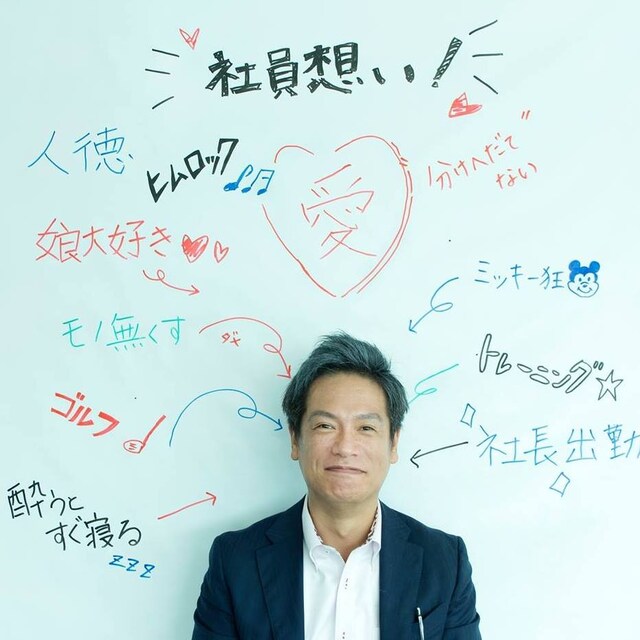 社員想い!
人徳
ヒムロック
愛
分けへだて
ない
娘大好き
ミッキー狂
モノ無くす
ダメ
トレーニング
ゴルフ
社長出勤
酔うと
すぐ寝る
zzz